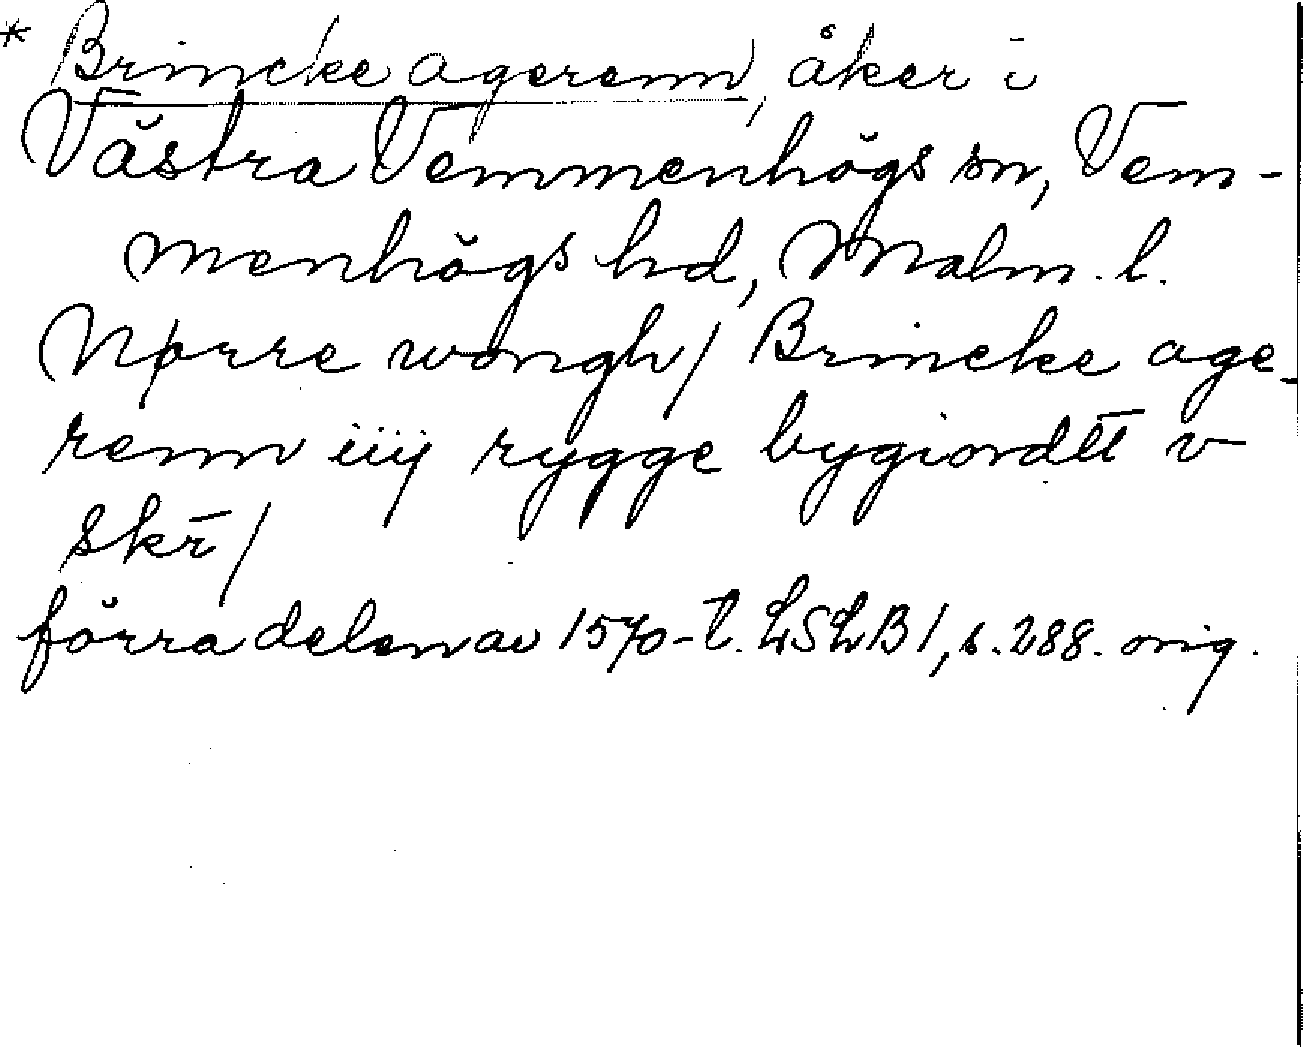 * Brincke agerenn, åker i
Västra Vemmenhögs sn, Vem-
menhögs hd, Malm. l.
Nørre wongh/ Brincke age-
renn iiij rygge bygiordtt v
skr̄/
förra delen av 1570-t. LSLB1, s. 288. orig.